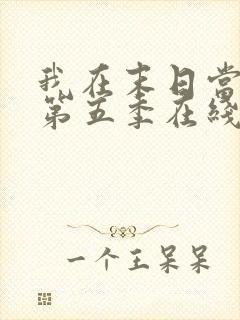 我在末日当
第五季在线
一个王呆呆